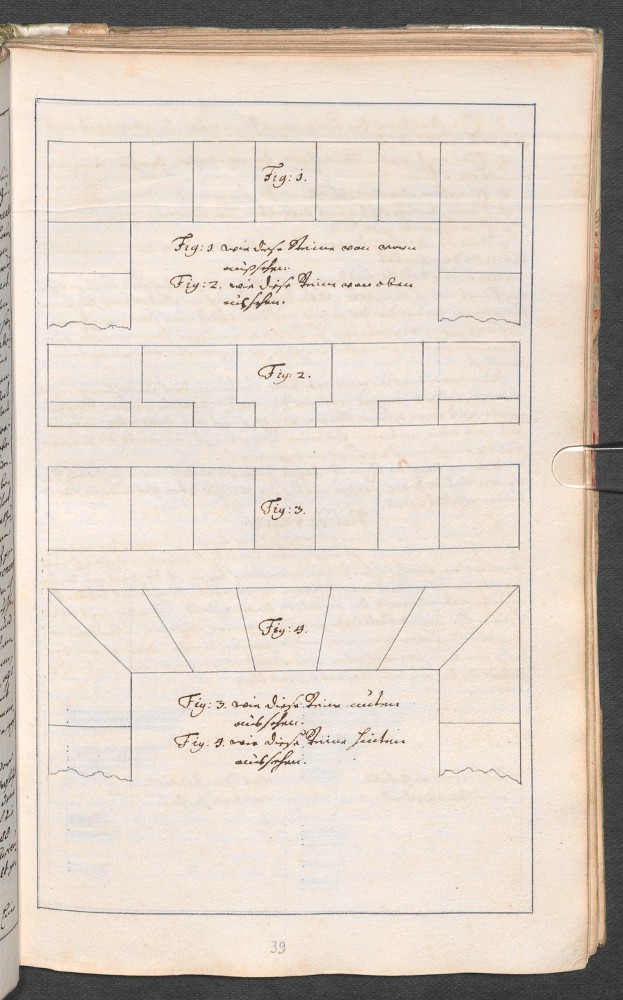 Fig: 1.
Fig: 1 wie diese Steine von vorn
außsehen.
Fig: 2. wie diese Steine von oben
aussehen.
Fig: 2.
Fig: 3.
Fig: 4.
Fig: 3. wie diese Steine unten
aussehen.
Fig: 4. wie diese Steine hinten
aussehen.
39